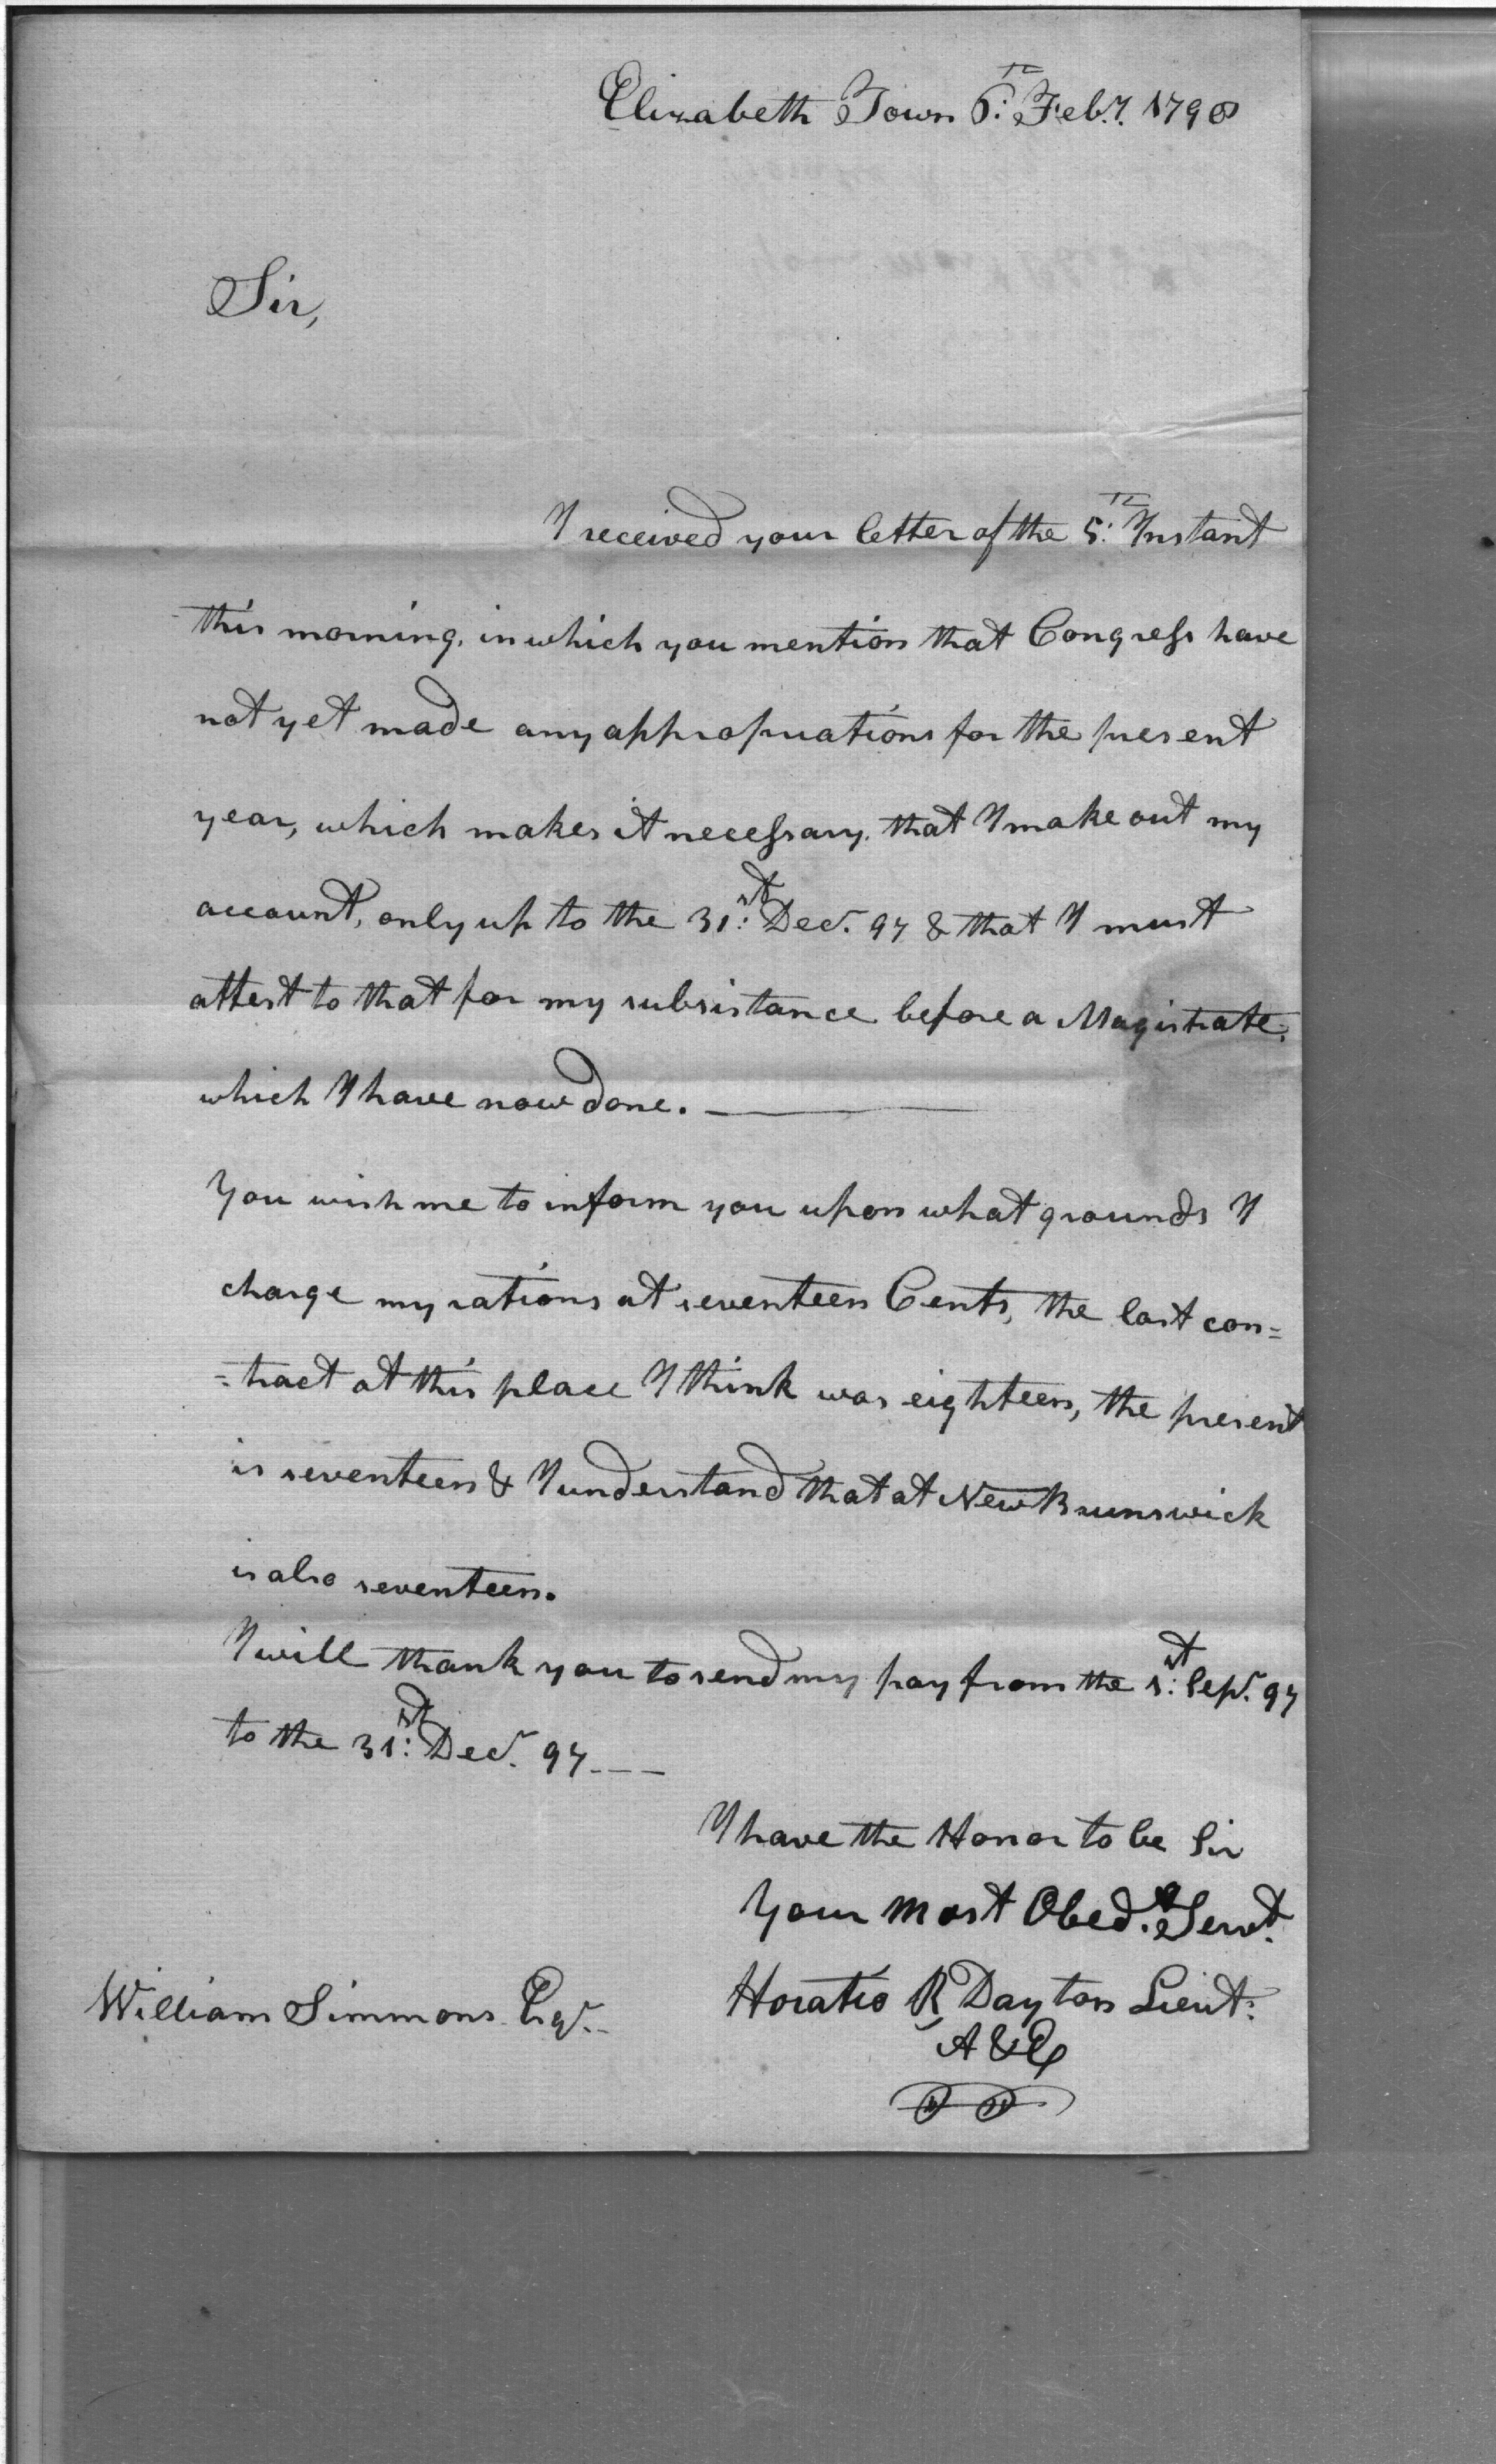 Elizabeth Town 6:th Feby. 1798
Sir,
I received your letter of the 5:th Instant
this morning, in which you mention that Congress have
not yet made any appropriations for the present
year, which makes it necessary. that I make out my
account, only up to the 31:st Decr. 97 & that I must
attest to that for my subsistance before a Magistrate,
which I have now done. ———
You wish me to inform you upon what grounds I
charge my rations at seventeen Cents, the last con=
=tract at this place I think was eighteen, the present
is seventeen & I understand that at New Brunswick
is also seventeen.
I will thank you to send my pay from the 1:st Sepr. 97
to the 31:st Decr. 97---
I have the Honor to be Sir
Your most Obed.t Servt.
Horatio R Dayton Lieut:
A & E
William Simmons Esqr.